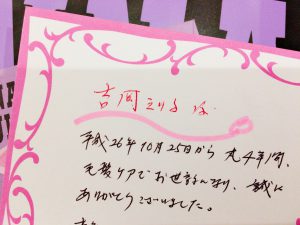 吉岡
平成26年10月25日から丸4年間、
毛髪ケアでお世話になり、誠に
ありがとうございました。